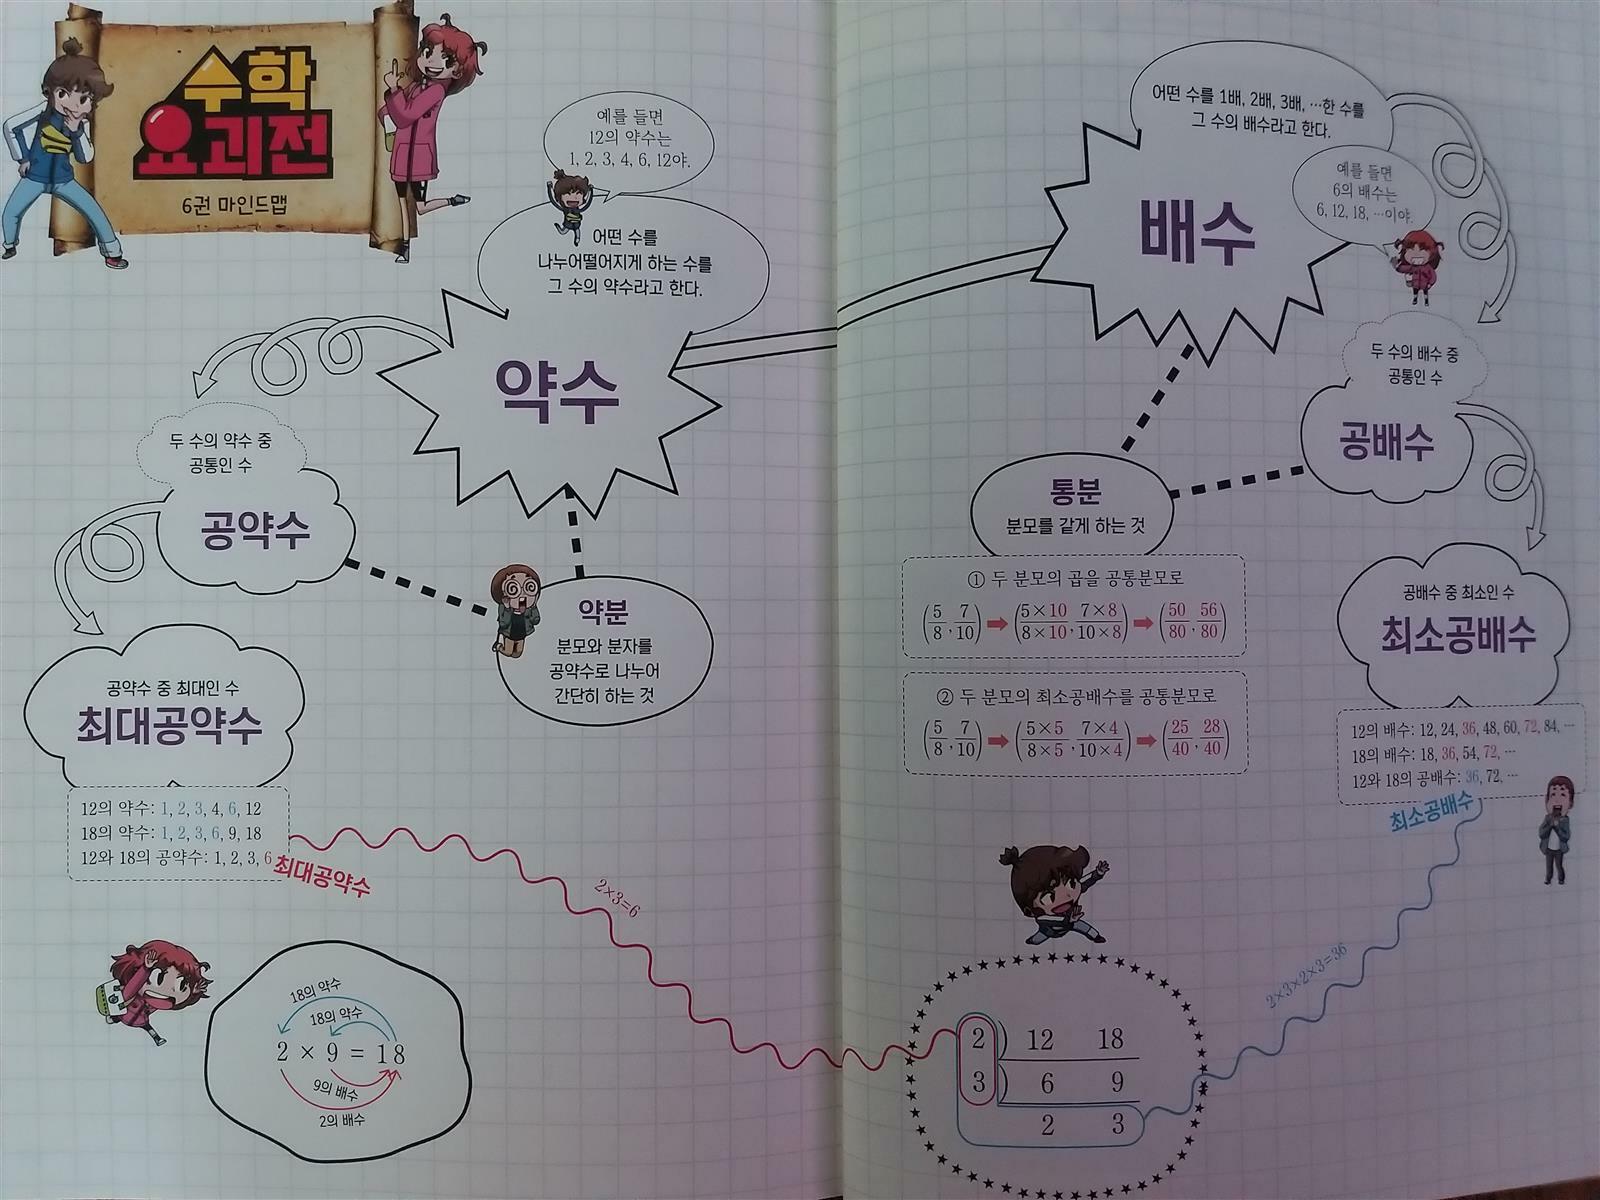 수학
요괴전
6권 마인드맵
예를 들면
12의 약수는
1, 2, 3, 4, 6, 12야.
어떤 수를
나누어떨어지게 하는 수를
그 수의 약수라고 한다.
약수
두 수의 약수 중
공통인 수
공약수
약분
분모와 분자를
공약수로 나누어
간단히 하는 것
공약수 중 최대인 수
최대공약수
12의 약수: 1, 2, 3, 4, 6, 12
18의 약수: 1, 2, 3, 6, 9, 18
12와 18의 공약수: 1, 2, 3, 6
최대공약수
2×3=6
18의 약수
18의 약수
2 × 9 = 18
9의 배수
2의 배수
어떤 수를 1배, 2배, 3배, …한 수를
그 수의 배수라고 한다.
예를 들면
6의 배수는
6, 12, 18, …이야.
배수
두 수의 배수 중
공통인 수
공배수
통분
분모를 같게 하는 것
① 두 분모의 곱을 공통분모로
(5/8, 7/10) ➡ (5×10/8×10, 7×8/10×8) ➡ (50/80, 56/80)
② 두 분모의 최소공배수를 공통분모로
(5/8, 7/10) ➡ (5×5/8×5, 7×4/10×4) ➡ (25/40, 28/40)
공배수 중 최소인 수
최소공배수
12의 배수: 12, 24, 36, 48, 60, 72, 84, …
18의 배수: 18, 36, 54, 72, …
12와 18의 공배수: 36, 72, …
최소공배수
2×3×2×3=36
2 ) 12 18
3 ) 6 9
2 3